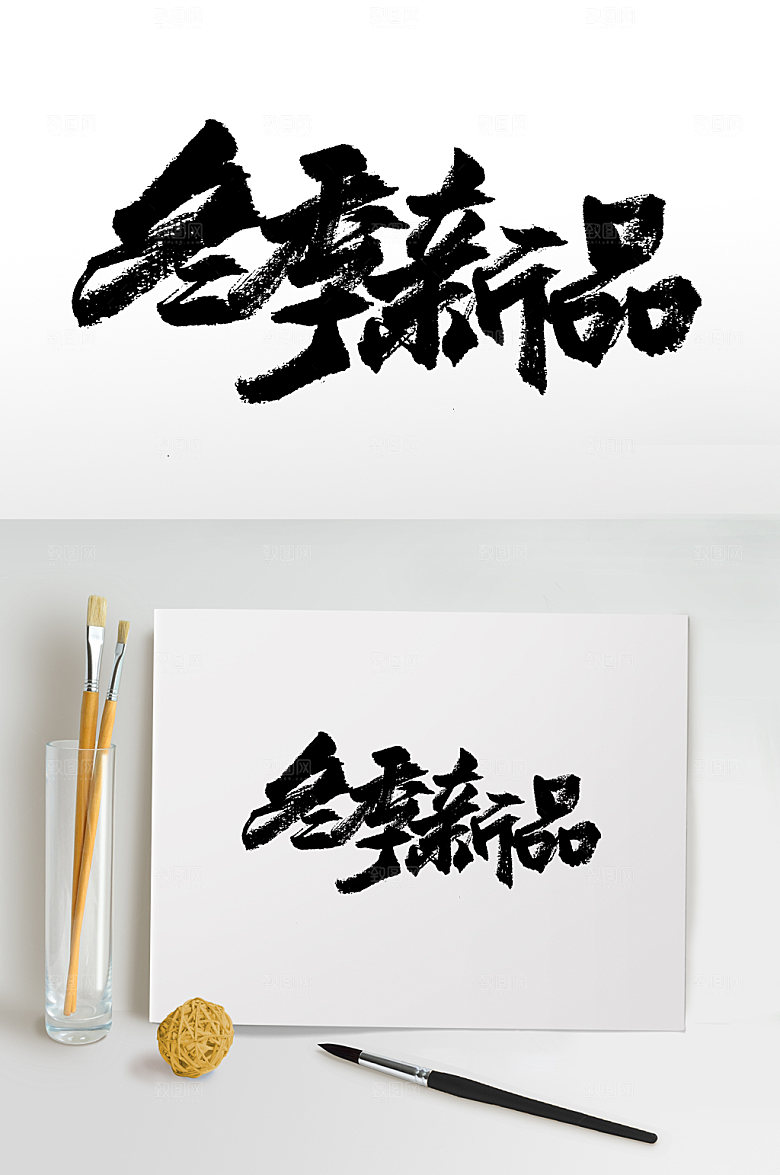 冬季新品
冬季新品